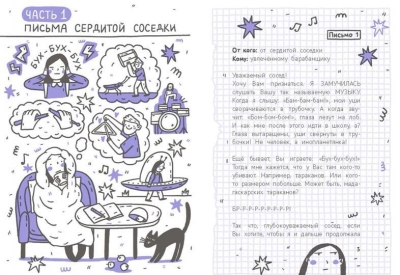 ЧАСТЬ 1
ПИСЬМА СЕРДИТОЙ СОСЕДКИ
БУХ-БУХ-БУХ
Письмо 1
От кого: от сердитой соседки
Кому: увлечённому барабанщику
Уважаемый сосед!
Хочу Вам признаться. Я ЗАМУЧИЛАСЬ
слушать Вашу так называемую МУЗЫКУ.
Когда я слышу: «Бам-бам-бам!», мои уши
сворачиваются в трубочку. А когда зву-
чит: «Бом-бом-бом!», глаза лезут на лоб.
И как мне после этого идти в школу, а?
Глаза вытаращены, уши свёрнуты в тру-
бочки! Не человек, а инопланетянка!
Ещё бывает, Вы играете: «Бух-бух-бух!»
Тогда мне кажется, что у Вас там кого-то
убивают. Например, тараканов. Или кого-
то размером побольше. Может быть, мада-
гаскарских тараканов?
БР-Р-Р-Р-Р-Р-Р-Р!
Так что, глубокоуважаемый сосед, если
Вы хотите, чтобы я и дальше продолжала